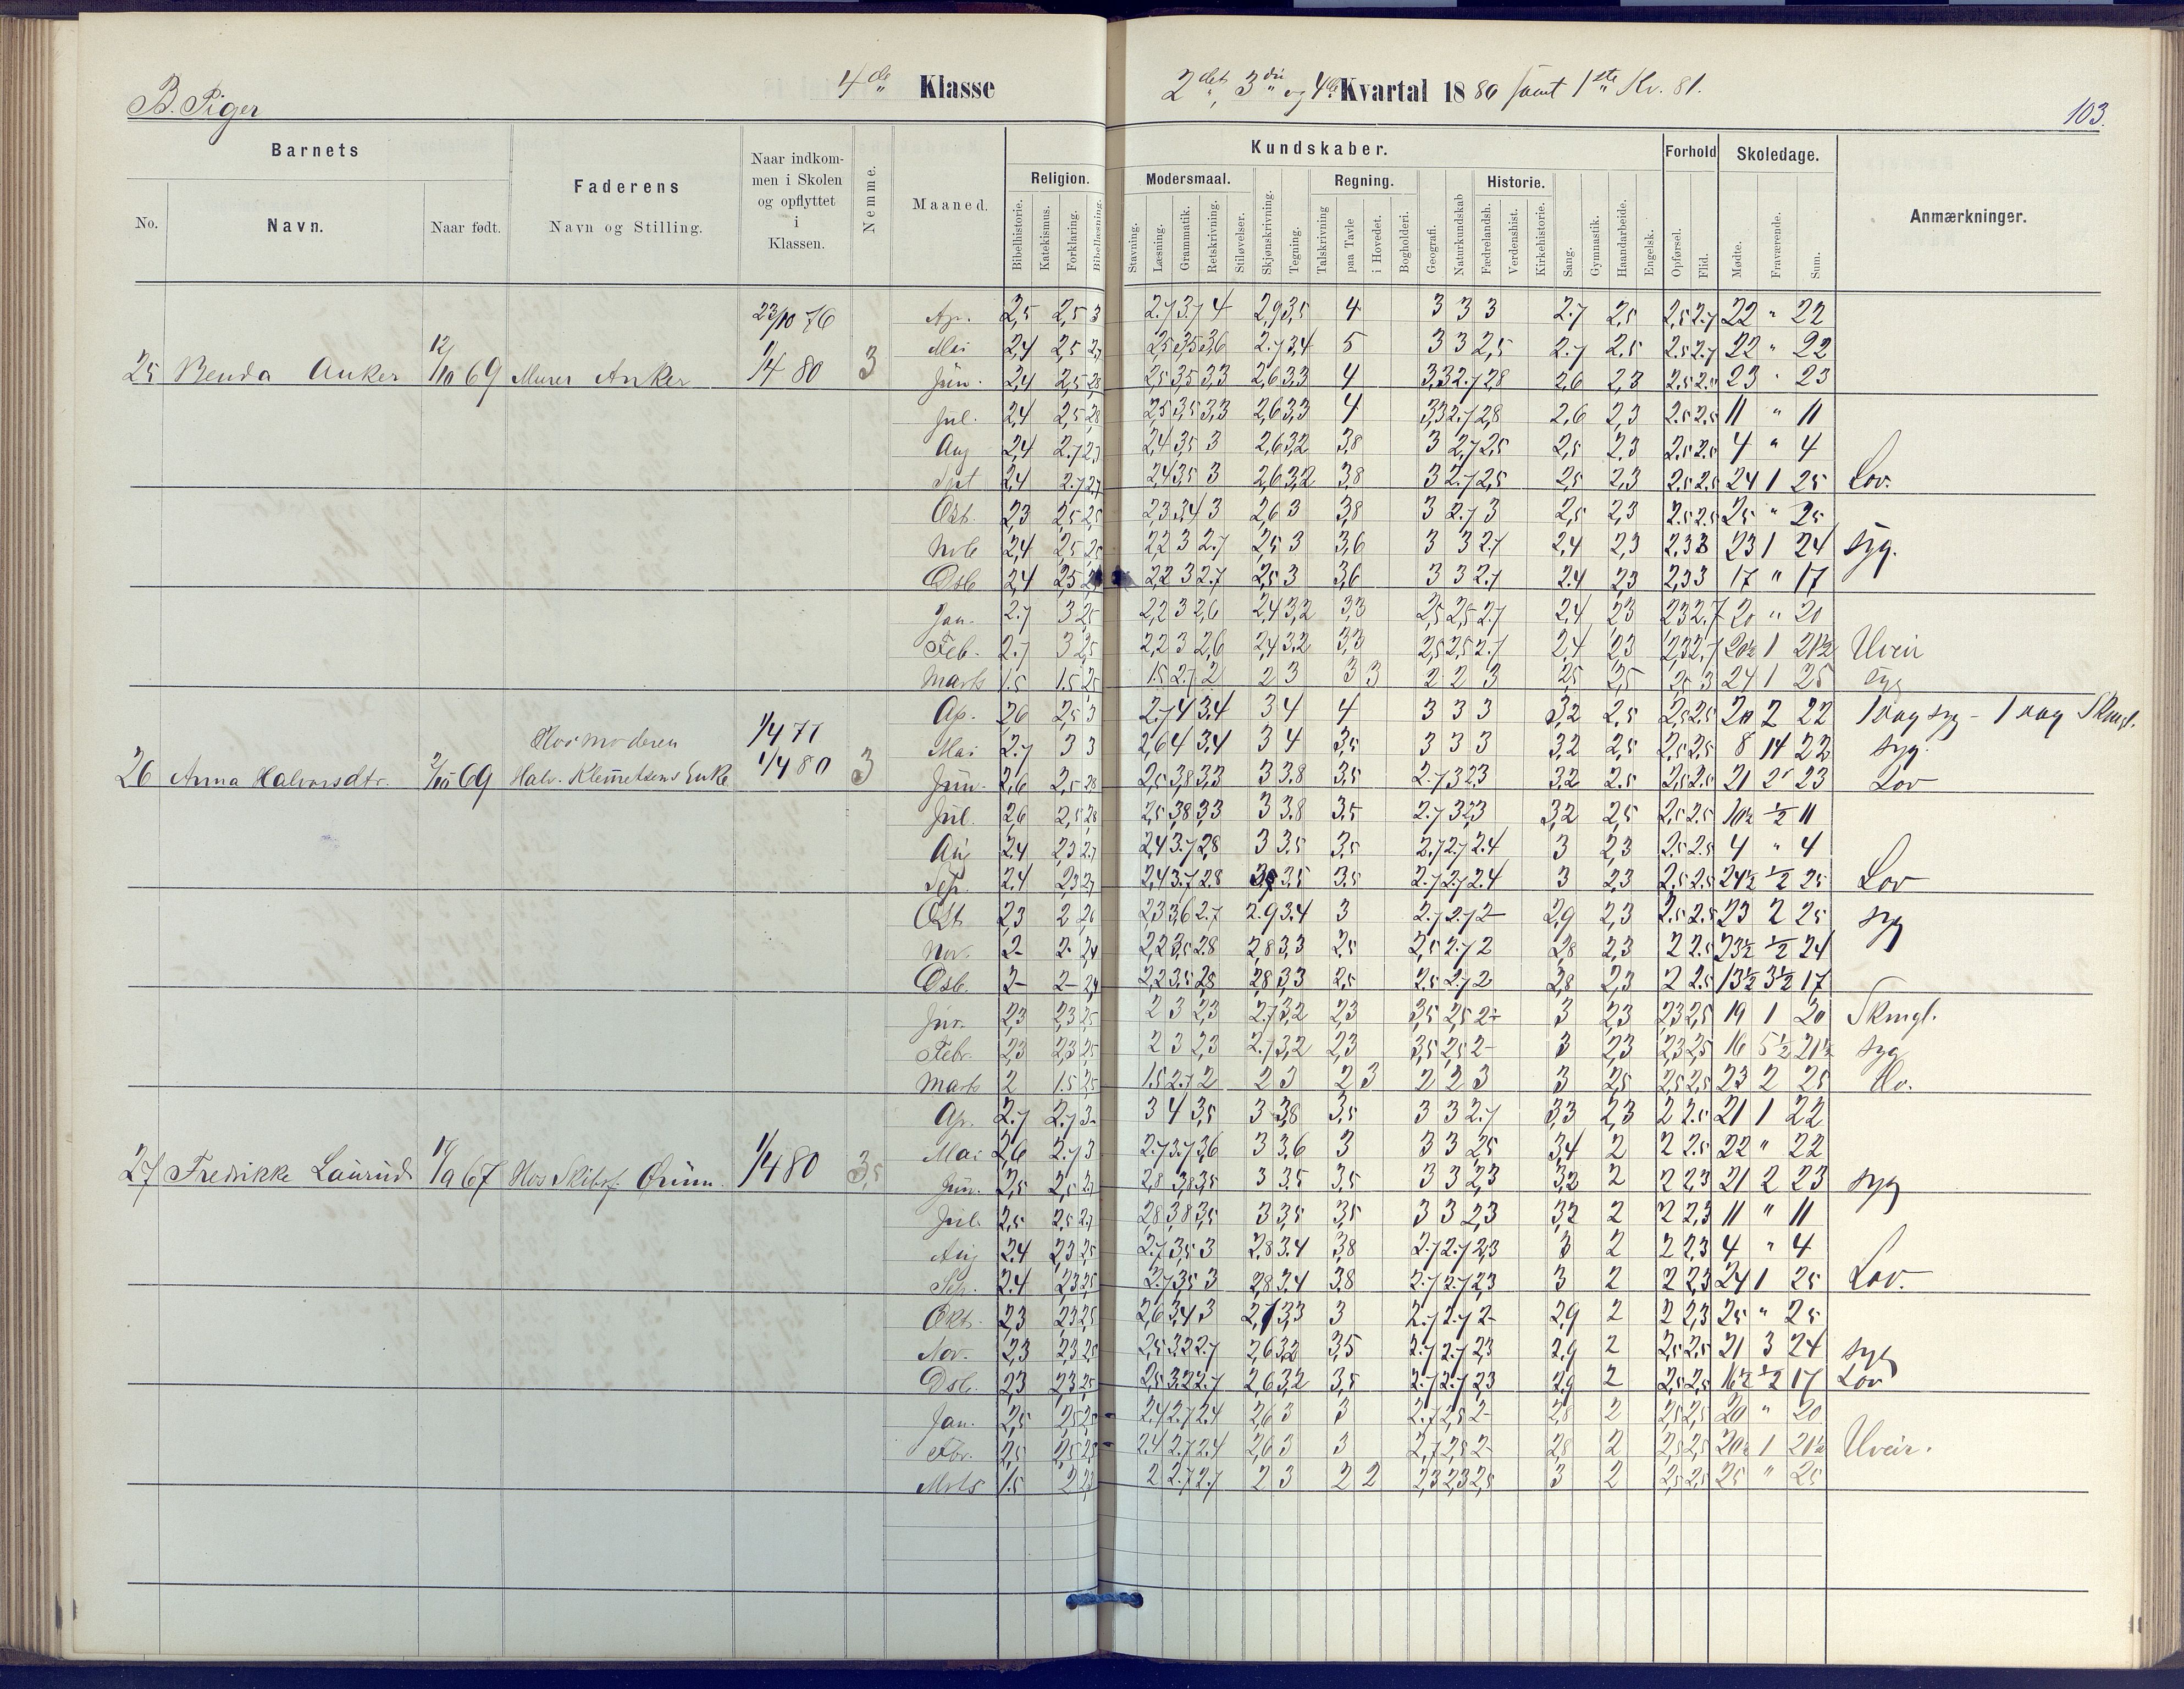 B. Piger
4de Klasse
2det, 3die og 4de Kvartal 1880 samt 1ste Kv. 81.
103.
Barnets
No.
Navn.
Naar født.
Faderens
Navn og Stilling.
Naar indkom-
men i Skolen
og opflyttet
i
Klassen.
Nemme.
Maaned.
Kundskaber.
Religion.
Bibelhistorie.
Katekismus.
Forklaring.
Bibellæsning.
Modersmaal.
Stavning.
Læsning.
Grammatik.
Retskrivning.
Stiløvelser.
Skjønskrivning.
Tegning.
Regning.
Talskrivning
paa Tavle
i Hovedet.
Bogholderi.
Geografi.
Naturkundskab
Historie.
Fædrelandsh.
Verdenshist.
Kirkehistorie.
Sang.
Gymnastik.
Haandarbeide.
Engelsk.
Forhold
Opførsel.
Flid.
Skoledage.
Mødte.
Fraværende.
Sum.
Anmærkninger.
23/10 76
Ap. 2,5 2,5 3 2.7 3.7 4 2,9 3,5 4 3 3 3 2.7 2,5 2,5 2.7 22 " 22
12
Mai 2,4 2,5 2,7 2,5 3,5 3,6 2.7 3,4 5 3 3 2,5 2.7 2.5 2.5 2.7 22 " 22
25 Benda Anker 1/10 69 Murer Anker 1/4 80 3 Jun. 2,4 2,5 2,8 2,5 3,5 3,3 2,6 3,3 4 3,3 2.7 2,8 2,6 2,3 2.5 2.5 23 " 23
Jul. 2,4 2,5 2,8 2,5 3,5 3,3 2,6 3,3 4 3,3 2.7 2,8 2,6 2,3 2.5 2.5 11 " 11
Aug 2,4 2.7 2,7 2,4 3,5 3 2,6 3,2 3,8 3 2,7 2,5 2,5 2,3 2.5 2.5 4 " 4
Spt 2,4 2.7 2,7 2,4 3,5 3 2,6 3,2 3,8 3 2.7 2,5 2,5 2,3 2.5 2.5 24 1 25 Lov.
Okt. 2,3 2,5 2,5 2,3 3,4 3 2,6 3 3,8 3 2.7 3 2,5 2,3 2.5 2.5 25 " 25
Nvb 2,4 2,5 2,5 2,2 3 2.7 2,5 3 3,6 3 3 2.7 2,4 2,3 2,3 3 23 1 24 syg.
Dsb 2,4 2,5 2,2 3 2.7 2,5 3 3,6 3 3 2.7 2.4 2,3 2,3 3 17 " 17
Jan. 2.7 3 2,5 2,2 3 2,6 2,4 3,2 3,3 2,5 2,5 2.7 2,4 2,3 2,3 2.7 20 " 20
Feb. 2.7 3 2,5 2,2 3 2,6 2,4 3,2 3,3 2,5 2,5 2.7 2,4 2,3 2,3 2.7 20½ 1 21½ Uveir
Marts 1.5 1.5 2,5 1.5 2.7 2 2 3 3 3 2 2 3 2,5 2,5 2,5 3 24 1 25 Syg
Ap. 2,6 2,5 3 2.7 4 3,4 3 4 4 3 3 3 3,2 2,5 2,5 2,5 20 2 22 1 dag syg - 1 dag Skmgl.
Hos moderen 1/4 77 Mai 2.7 3 3 2,6 4 3,4 3 4 3,5 3 3 3 3,2 2,5 2,5 2,5 8 14 22 syg.
26 Anna Halvorsdtr. 2/10 69 Halv. Klemetsens Enke 1/4 80 3 Jun. 2,6 2,5 2,8 2,5 3,8 3,3 3 3,8 3,5 2.7 3 2,3 3,2 2.5 2,5 2.5 21 2 23 Lov
Jul. 2,6 2,5 2,8 2,5 3,8 3,3 3 3,8 3,5 2.7 3 2,3 3,2 2,5 2,5 2.5 10½ ½ 11
Aug 2,4 2,3 2.7 2,4 3.7 2,8 3 3,5 3,5 2.7 2.7 2.4 3 2,3 2.5 2.5 4 " 4
Sep. 2.4 2,3 2,7 2,4 3.7 2.8 3,5 3,5 2.7 2.7 2.4 3 2,3 2.5 2.5 24½ ½ 25 Lov
Okt. 2,3 2 2,6 2,3 3,6 2.7 2.9 3.4 3 2.7 2.7 2- 2,9 2,3 2.5 2.5 23 2 25 syg
Nov. 2- 2- 2,4 2,2 3,5 2.8 2,8 3,3 2,5 2,5 2.7 2 2,8 2,3 2 2.5 23½ ½ 24
Dsb. 2- 2- 2,4 2,2 3,5 2,8 2,8 3,3 2,5 2.5 2.7 2 2,8 2,3 2 2.5 13½ 3½ 17
2,3 2,3 2,5 2 3 2,3 2.7 3,2 2,3 3,5 2,5 2- 3 2,3 2,3 2,5 19 1 20 Skmgl.
Febr. 2,3 2,3 2,5 2 3 2,3 2.7 3,2 2,3 3,5 2,5 2- 3 2,3 2,3 2,5 16 5½ 21½ syg
Marts 2 1.5 2,5 1.5 2.7 2 2 3 2 3 2 2 3 3 2,5 2,5 2,5 23 2 25 do.
Ap. 2.7 2.7 3- 3 4 3,5 3 3,8 3,5 3 3 2.7 3,3 2,3 2 2.5 21 1 22
Mai 2,6 2.7 3 2.7 3.7 3,6 3 3,6 3 3 3 2,5 3,4 2 2 2.5 22 " 22
27 Fredrikke Laurud 67 Hos Skibsf. 1/4 80 3,5 Jun. 2,5 2,5 2,7 2,8 3,8 3,5 3 3,5 3,5 3 3 2,3 3,2 2 2 2,3 21 2 23 syg
Jul. 2,5 2,5 2,7 2,8 3,8 3,5 3 3,5 3,5 3 3 2,3 3,2 2 2 2,3 11 " 11
Aug 2.4 2,3 2,5 2.7 3,5 3 2.8 3.4 3,8 2.7 2.7 2,3 3 2 2 2,3 4 " 4
Sep. 2.4 2,3 2,5 2.7 3,5 3 2,8 3,4 3,8 2.7 2.7 2,3 3 2 2 2,3 24 1 25 Lov.
Okt. 2,3 2,3 2,5 2,6 3,4 3 2,7 3,3 3 2.7 2.7 2- 2,9 2 2 2,3 25 " 25
Nov. 2,3 2,3 2,5 2,5 3,2 2.7 2,6 3,2 3,5 2.7 2.7 2,3 2,9 2 2,5 2,5 21 3 24 syg
Dsb. 2,3 2,3 2,5 2,5 3,2 2.7 2,6 3,2 3,5 2.7 2.7 2,3 2,9 2 2,5 2,5 16½ ½ 17 Lov
Jan. 2,5 2,5 2,5 2.4 2.7 2.4 2,6 3 3 2.7 2,5 2- 2,8 2 2,5 2,5 20 " 20
Fbr. 2,5 2,5 2,5 2.4 2.7 2.4 2,6 3 3 2,7 2,5 2- 2,8 2 2,5 2,5 20½ 1 21½ Uveir.
Mrts 1.5 2 2,3 2 2.7 2.7 2 3 2 2 2,3 2,3 2,5 3 2 2,5 2,5 25 " 25